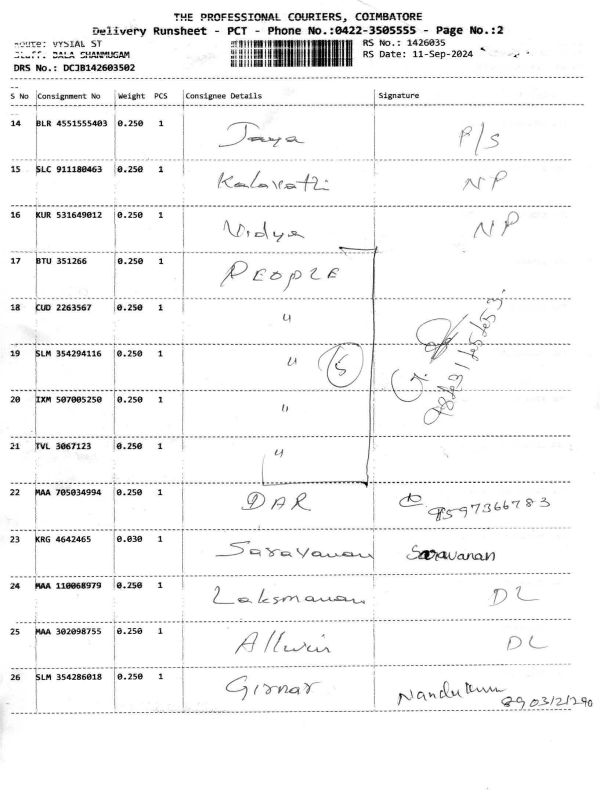 THE PROFESSIONAL COURIERS, COIMBATORE
Delivery Runsheet - PCT - Phone No.:0422-3505555 - Page No.:2
Route: VYSIAL ST RS No.: 1426035
Staff: BALA SHANMUGAM RS Date: 11-Sep-2024
DRS No.: DCJB142603502
S No Consignment No Weight PCS Consignee Details Signature
14 BLR 4551555403 0.250 1 Jaya P/S
15 SLC 911180463 0.250 1 Kalavathi NP
16 KUR 531649012 0.250 1 Vidya NP
17 BTU 351266 0.250 1 PEOPLE
18 CUD 2263567 0.250 1 "
19 SLM 354294116 0.250 1 " 5
20 IXM 507005250 0.250 1 "
21 TVL 3067123 0.250 1 "
22 MAA 705034994 0.250 1 DAR 9597366783
23 KRG 4642465 0.030 1 Saravanan Saravanan
24 MAA 110068979 0.250 1 Laksmanan DL
25 MAA 302098755 0.250 1 Allwin DL
26 SLM 354286018 0.250 1 Girnar